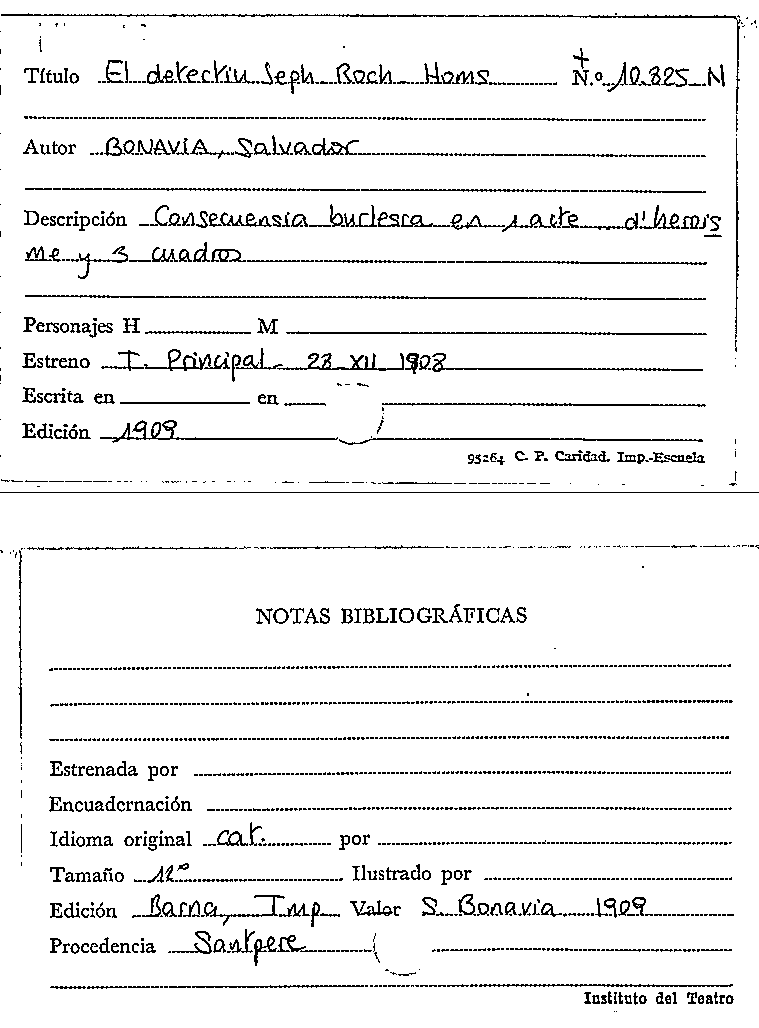 Título El detectiu Seph Roch Homs N.º 10.825 N
Autor BONAVIA, Salvador
Descripción Consecuensia burlesca en 1 acte d'hemis
me y 3 cuadros
Personajes H M
Estreno T. Principal - 28 XII 1908
Escrita en en
Edición 1909
95264 C. P. Caridad. Imp.-Escuela
NOTAS BIBLIOGRÁFICAS
Estrenada por
Encuadernación
Idioma original cat. por
Tamaño 12º Ilustrado por
Edición Barna, Imp Valor S. Bonavia 1909
Procedencia Santpere
Instituto del Teatro